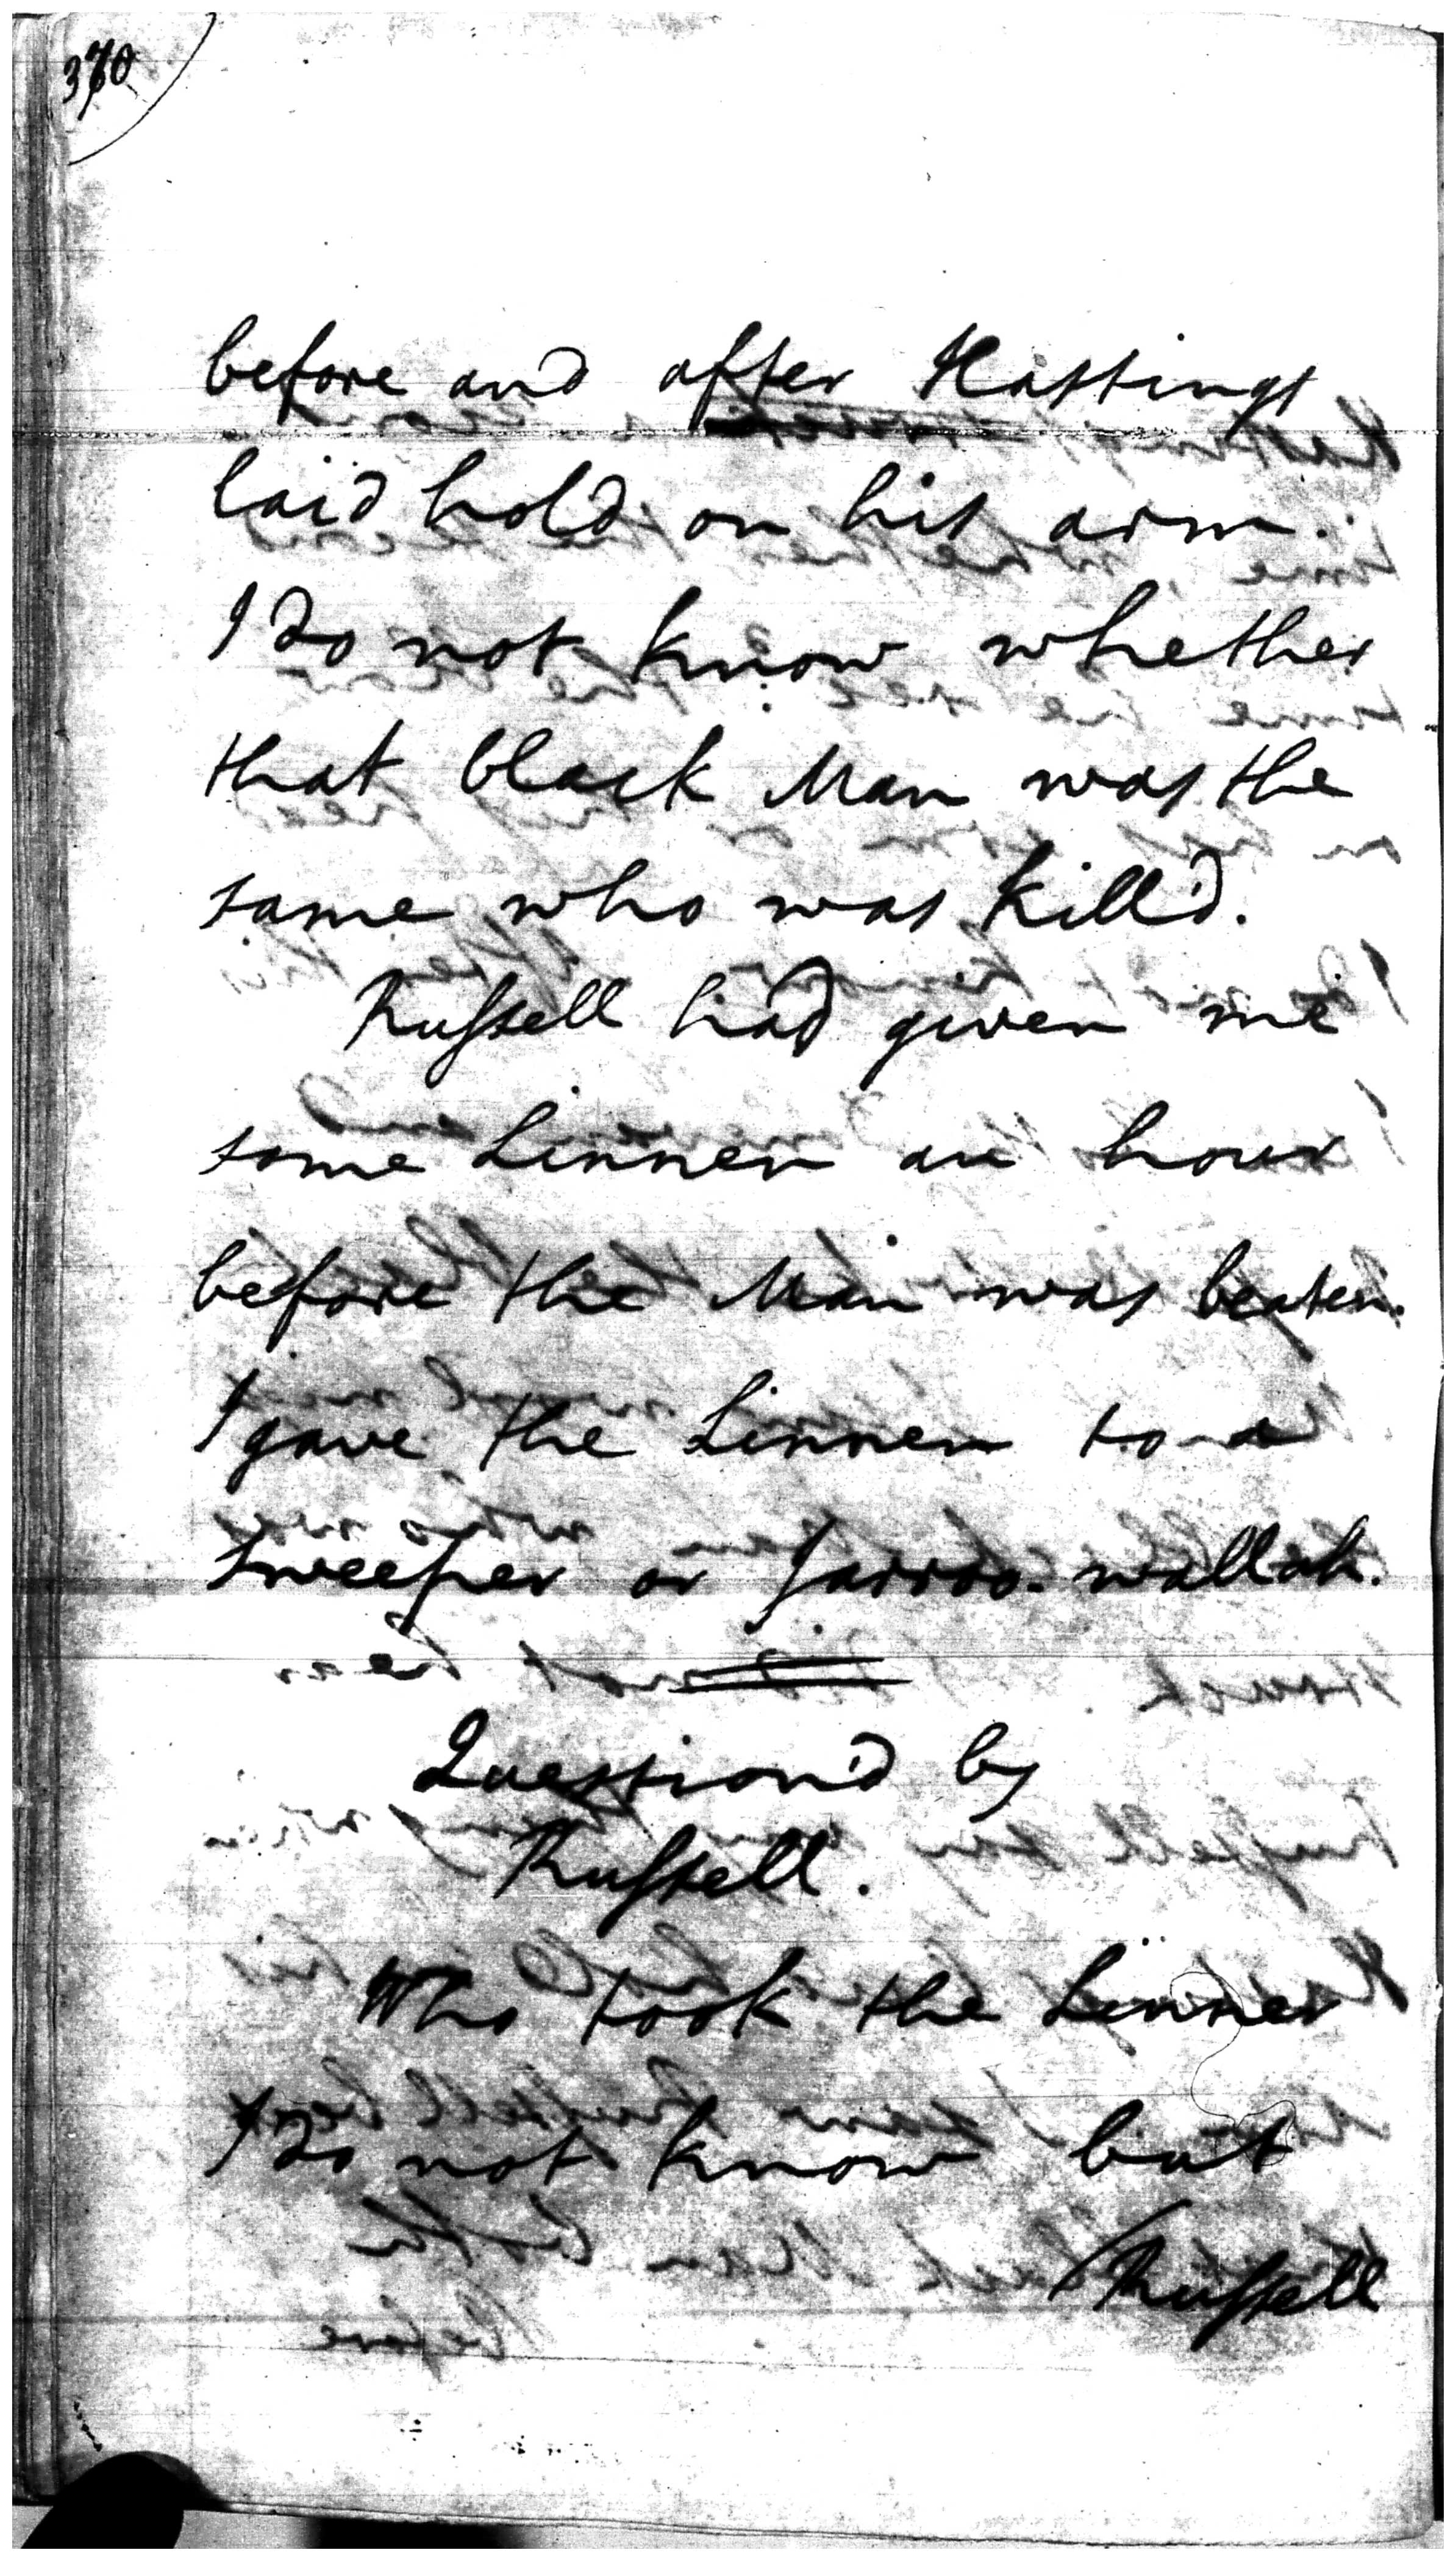 370
before and after Hastings
laid hold on his arm.
I do not know whether
that black Man was the
same who was kill'd.
Russell had given me
some Linnen an hour
before the Man was beaten.
I gave the Linnen to a
sweeper or Jarroo-wallah.
Question'd by
Russell.
Who took the Linnen
I do not know but
Russell